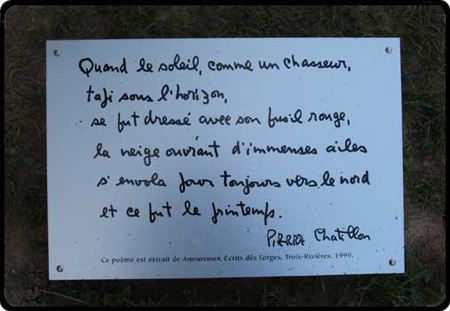 Quand le soleil, comme un chasseur,
tapi sous l'horizon,
se fut dressé avec son fusil rouge,
la neige ouvrant d'immenses ailes
s'envola pour toujours vers le nord
et ce fut le printemps.
Pierre Chatillon
Ce poème est extrait de Amoureuses, Écrits des Forges, Trois-Rivières, 1999.